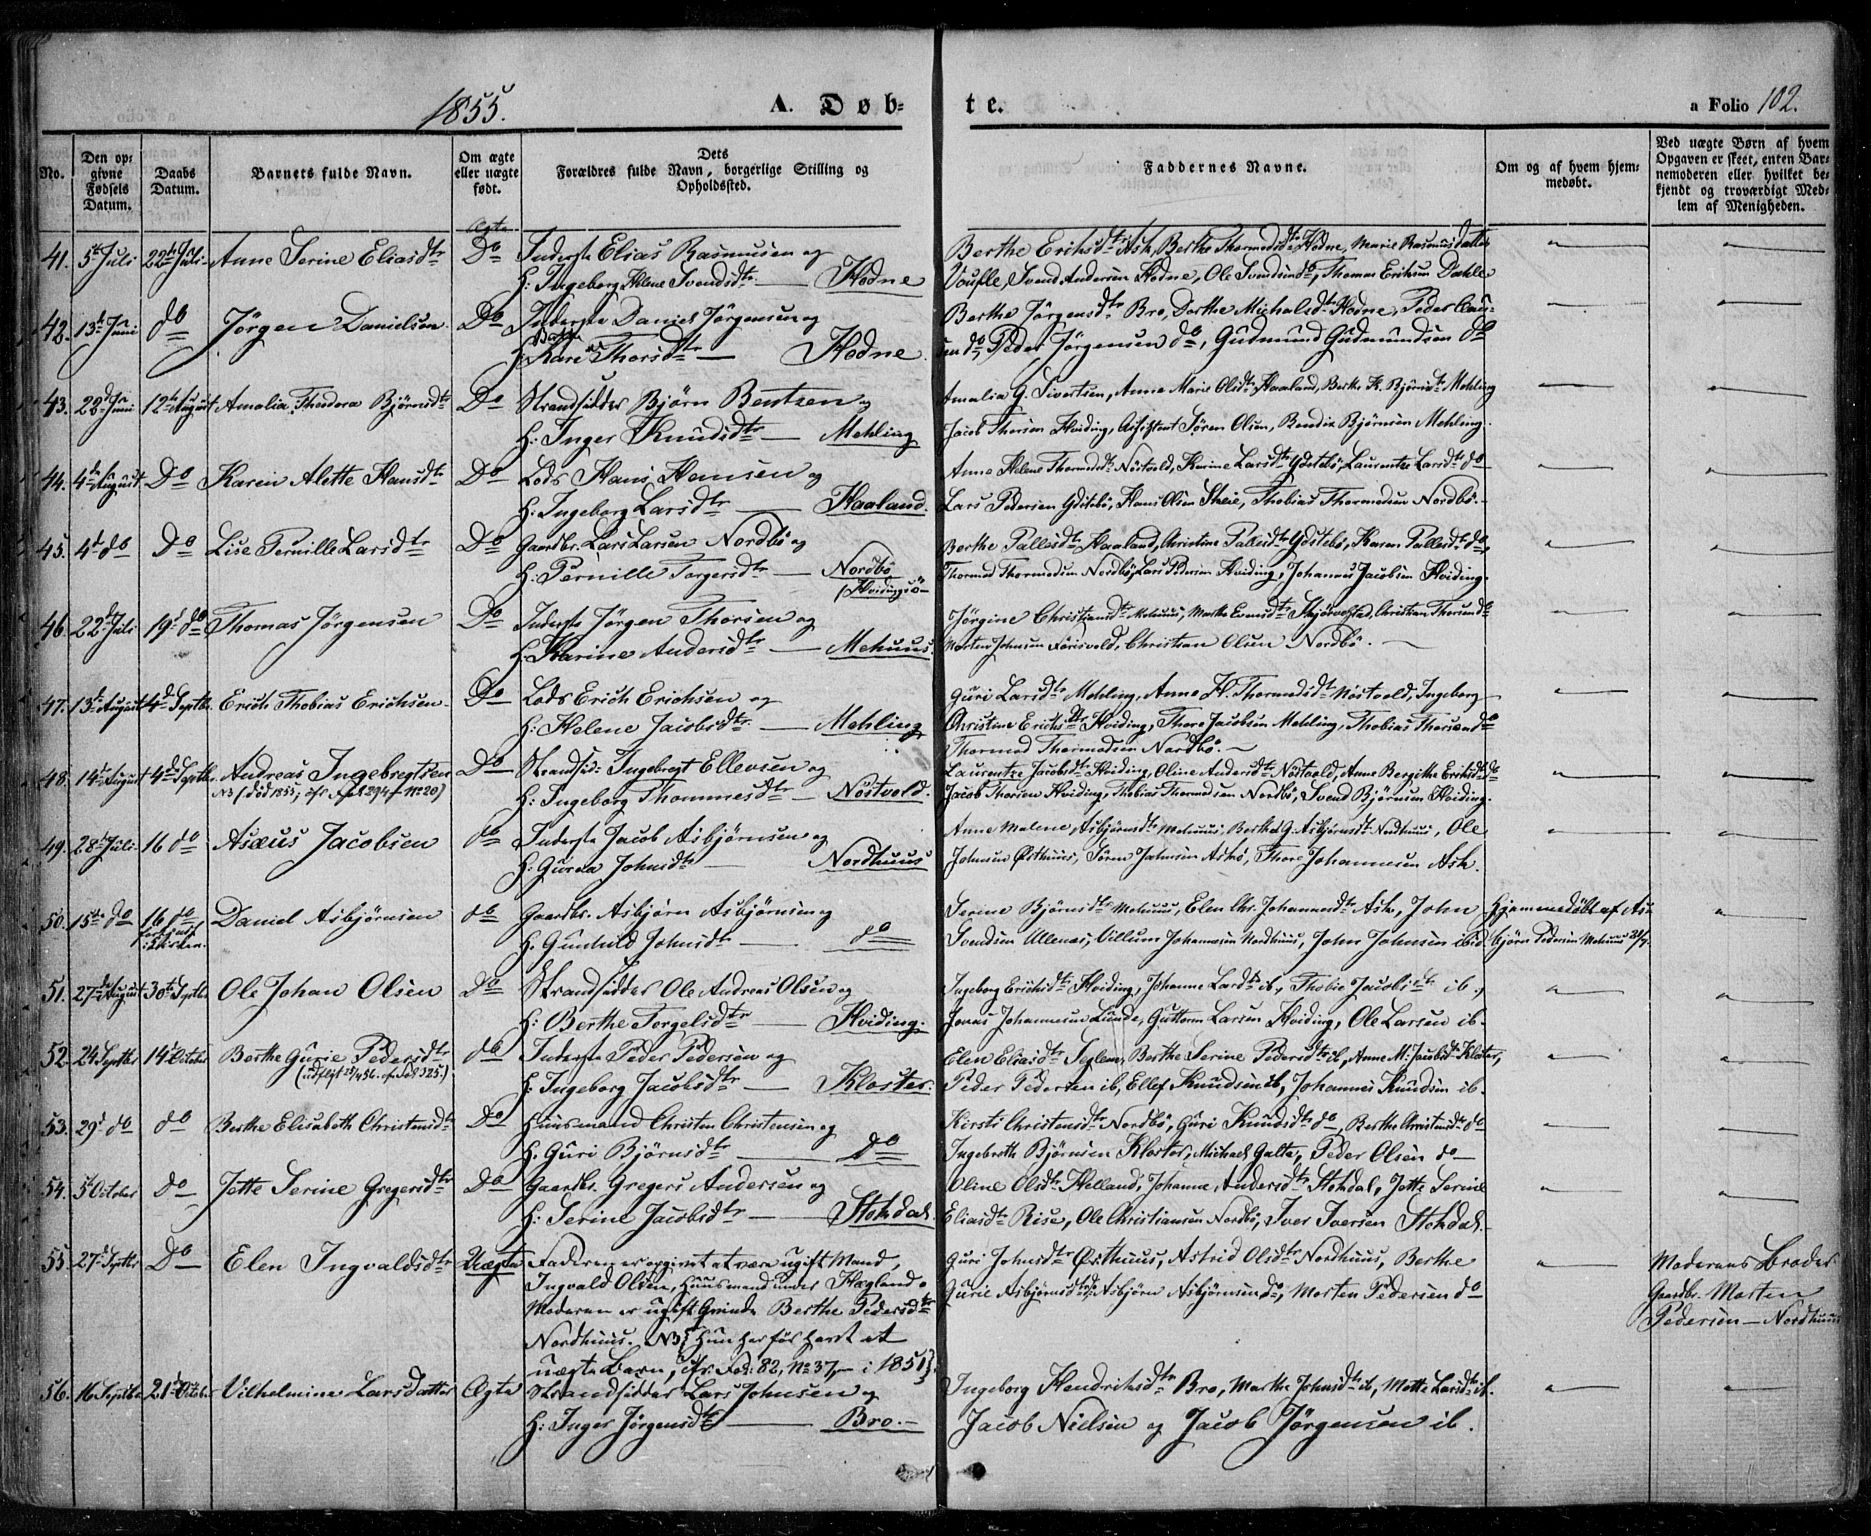 1855.
A. Døb-
te.
a Folio 102.
No.
Den op-
givne
Fødsels
Datum.
Daabs
Datum.
Barnets fulde Navn.
Om ægte
eller uægte
født.
Dets
Forældres fulde Navn, borgerlige Stilling og
Opholdssted.
Faddernes Navne.
Om og af hvem hjem-
medøbt.
Ved uægte Børn af hvem
Opgaven er skeet, enten Bar-
nemoderen eller hvilket be-
kjendt og troværdigt Med-
lem af Menigheden.
Ægte
41. 5te Juli 22de Juli Anne Serine Eliasdtr Do Inderste Elias Rasmusen og
H: Ingeborg Helene Svendsdtr — Hodne
Berthe Erichsdtr Ask, Berthe Thormodsdtr Hodne, Marie Rasmusdatter
Svend Andersen Hodne, Ole Svendsen do, Thomas Erichsen Dahle
42. 13de Juni do Jörgen Danielsen Do Inderste Daniel Jörgensen og
H: Kari Thorsdtr — Hodne.
Berthe Jörgensdtr Bro, Dorthe Michelsdtr Hodne, Peder Clau-
sen do, Peder Jörgensen do, Gudmund Gudmundsen do
43. 22de Juni 12te August Amalia Theodora Bjørnsdtr Do Strandsidder Bjørn Bentzen og
H: Inger Knudsdtr — Mehling
Amalia G. Sivertsen, Anne Marie Olsdtr Haaland, Berthe K. Bjørnsdtr Mehling
Jacob Thorsen Hviding, Assistent Sören Olsen, Bendix Bjørnsen Mehling.
44. 4de August Do Karen Alette Hansdtr Do Lods Hans Hansen og
H: Ingeborg Larsdtr — Haaland.
Anne Helene Thormodsdtr Nöstvold, Karine Larsdtr Ydstebö, Laurentze Larsdtr do
Lars Pedersen Ydstebö, Hans Olsen Skeie, Thobias Thormodsen Nordbö.
45. 4de do Do Lise Pernille Larsdtr Do Gaardbr. Lars Larsen Nordbö og
H: Pernille Torgersdtr — Nordbö
(Hvidingsö
Berthe Pallesdtr Haaland, Christine Pallesdtr Ydstebö, Karen Pallesdtr do,
Thormod Thormodsen Nordbö, Lars Pedersen Hviding, Johannes Jacobsen Hviding.
46. 22de Juli 19de do Thomas Jörgensen Do Inderste Jörgen Thorsen og
H: Karine Andersdtr — Mehuus.
Jörgine Christiansdtr Mehuus, Marthe Evensdtr Christian Thorsen do
Morten Johnsen Christian Olsen Nordbö.
47. 13de August 4de Septbr. Erich Thobias Erichsen Do Lods Erich Erichsen og
H: Helene Jacobsdtr — Mehling
Guri Larsdtr Mehling, Anne H. Thormodsdtr Nöstvold, Ingeborg
Christine Erichsdtr Hviding, Thore Jacobsen Mehling, Thobias Thorsen do
Thormod Thormodsen Nordbö.
48. 14de August 4de Septbr. Andreas Ingebregtsen Do Strandsid: Ingebregt Ellevsen og
NB (död 1855, cfr. Fol. 294 f No 20)
H: Ingeborg Thommesdtr — Nöstvold.
Laurentze Jacobsdtr Hviding, Oline Andersdtr Nöstvold, Anne Bergithe Erichsdtr do
Jacob Thorsen Hviding, Thobias Thormodsen Nordbö, Svend Bjørnsen Hviding.
49. 28de Juli 16 do Asæus Jacobsen do Inderste Jacob Asbjørnsen og
H: Gurea Johnsdtr — Nordhuus
Anne Malene Asbjørnsdtr Mehuus, Berthe G. Asbjørnsdtr Nordhuus, Ole
Johnsen Østhuus, Sören Johnsen Askö, Thore Johannesen Ask.
50. 15de do 16 do Daniel Asbjørnsen do Gaardbr. Asbjørn Asbjørnsen og
H: Gunhild Johnsdtr — do
Serine Bjørnsdtr Mehuus, Elen Chr. Johannesdtr Ask, John
Svendsen Ullenæs, Villum Johannesen Nordhuus, John Johnsen ibid
Hjemmedöbt af As-
bjørn Pedersen Mehuus
51. 27de August 30te Septbr Ole Johan Olsen Do Strandsidder Ole Andreas Olsen og
H: Berthe Torgelsdtr — Hviding.
Ingeborg Erichsdtr Hviding, Johanne Larsdtr ib, Thobie Jacobsdtr ib,
Jonas Johannesen Lunde, Guttorm Larsen Hviding, Ole Larsen ib.
52. 24 Septbr 14de October Berthe Gurie Pedersdtr do Inderste Peder Pedersen og
H: Ingeborg Jacobsdtr — Kloster.
Elen Eliasdtr Seglem, Berthe Serine Pedersdtr ib, Anne M: Jacobsdtr Kloster,
Peder Pedersen ib, Ellef Knudsen ib, Johannes Knudsen ib.
53. 29de do do Berthe Elisabeth Christensdtr Do Huusmand Christen Christensen og
H. Guri Bjørnsdtr — Do
Kirsti Christensdtr Nordbö, Guri Knudsdtr do, Berthe Christensdtr do
Ingebreth Bjørnsen Kloster, Michael Galta, Peder Olsen do
54. 5te October do Jette Serine Gregersdtr Do Gaardbr. Gregers Andersen og
H: Serine Jacobsdtr — Stohdal.
Oline Olsdtr Helland, Johanne Andersdtr Stohdal, Jette Serine
Eliasdtr Rise, Ole Christiansen Nordbö, Iver Iversen Stohdal.
55. 27de Septbr Do Elen Ingvaldsdtr Uægte Faderen er opgivet at være ugift Mand,
Ingvald Olsen, Huusmand under Hægland.
Moderen er ugift Qvinde Berthe Pedersdtr
Nordhuus. NB (Hun har för havt et
uægte Barn, cfr. Fol: 82, No 37, i 1851).
Guri Johnsdtr Østhuus, Astrid Olsdtr Nordhuus, Berthe
Gurie Asbjørnsdtr do, Asbjørn Asbjørnsen do, Morten Pedersen do
Moderens Broder
Gaardbr. Morten
Pedersen Nordhuus
56. 16 Septbr 21de October Vilhelmine Larsdatter Ægte Strandsidder Lars Johnsen og
H: Inger Jörgensdtr — Bro.
Ingeborg Hendriksdtr Bro, Marthe Johnsdtr ib, Mette Larsdtr ib.
Jacob Nielsen og Jacob Jörgensen ib.